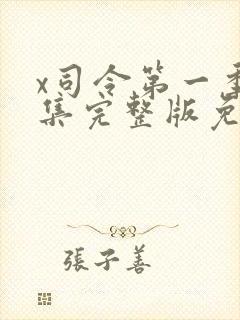 x司令第一季
集完整版免
張子善